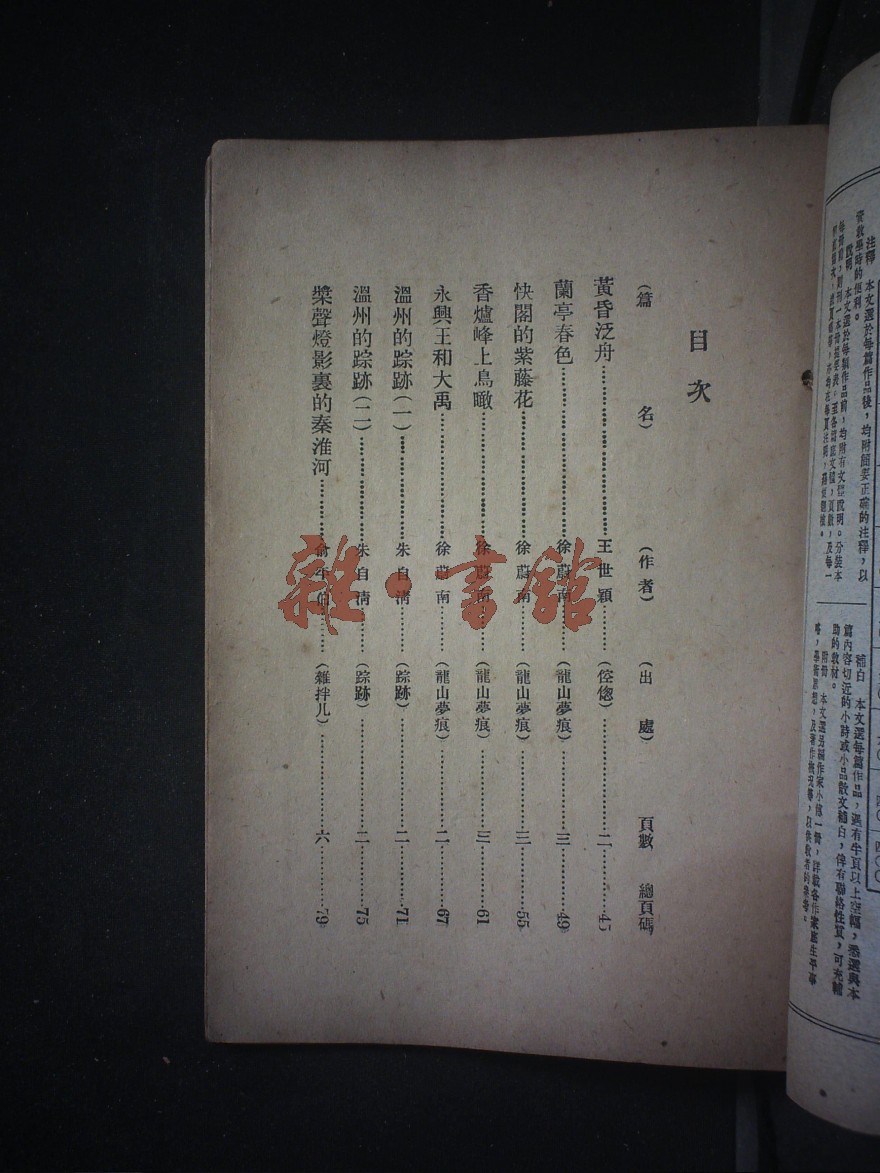 注釋　本文選於每篇作品後，均附簡要正確的注釋，以
資教學時的便利。
說明　本文選於每類作品前，均附有文體說明。分裝本
補白　本文選每篇作品，遇有半頁以上空幅，悉選與本
篇內容切近的小詩或小品散文補白，俾有聯絡性質，可充輔
助的教材。
附冊　本文選另編作家小傳一冊，詳載各作家底生平事
略，學術思想，及著作概況等，以供教者的參考。
目次
（篇名）（作者）（出處）頁數　總頁碼
黃昏泛舟……王世穎……（倥傯）……二……45
蘭亭春色……徐蔚南……（龍山夢痕）……三……49
快閣的紫藤花……徐蔚南……（龍山夢痕）……三……55
香爐峰上鳥瞰……徐蔚南……（龍山夢痕）……三……61
永興王和大禹……徐蔚南……（龍山夢痕）……二……67
溫州的踪跡（一）……朱自清……（踪跡）……二……71
溫州的踪跡（二）……朱自清……（踪跡）……二……75
槳聲燈影裏的秦淮河……俞平伯……（雜拌儿）……六……79
雜·書館